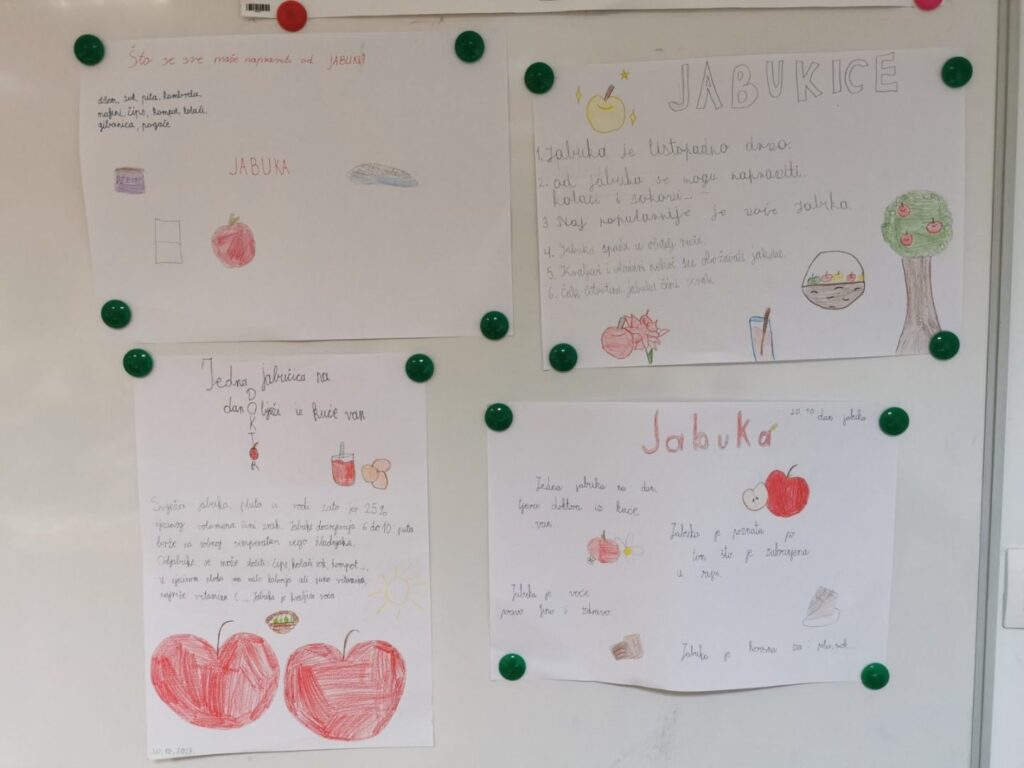 Što se sve može napraviti od JABUKE?
džem, sok, pita, kombucha
mafini, čips, kompot, kolači
gibanica, pogače
JABUKA
DŽEM
JABUKICE
1. Jabuka je listopadno drvo.
2. od jabuka se mogu napraviti
kolači i sokovi...
3. Naj popularnije je voće jabuka.
4. Jabuka spada u obitelj ruža.
5. Kraljevi i nekoć su obožavali jabuke.
6. Čak četvrtinu jabuke čini zrak.
Jedna jabučica na
dan DOKTOR bježi iz kuće van
Svježa jabuka pluta u vodi zato jer 25%
njezinog volumena čini zrak. Jabuke dozrijevaju 6 do 10 puta
brže na sobnoj temperaturi nego hladnjaka.
Od jabuke se može dobiti: čips, kolači, sok, kompot...
U njezinom plodu ima malo kalorija ali puno vitamina,
najviše vitamina C ... Jabuka je kraljica voća
20.10.2023.
Jabuka
20.10 dan jabuka
Jedna jabuka na dan
tjera doktora iz kuće
van
Jabuka je poznata po
tom što je zabranjena
u raju.
Jabuka je voće
puno fino i zdravo
Jabuka je korisna za: pitu, sok...